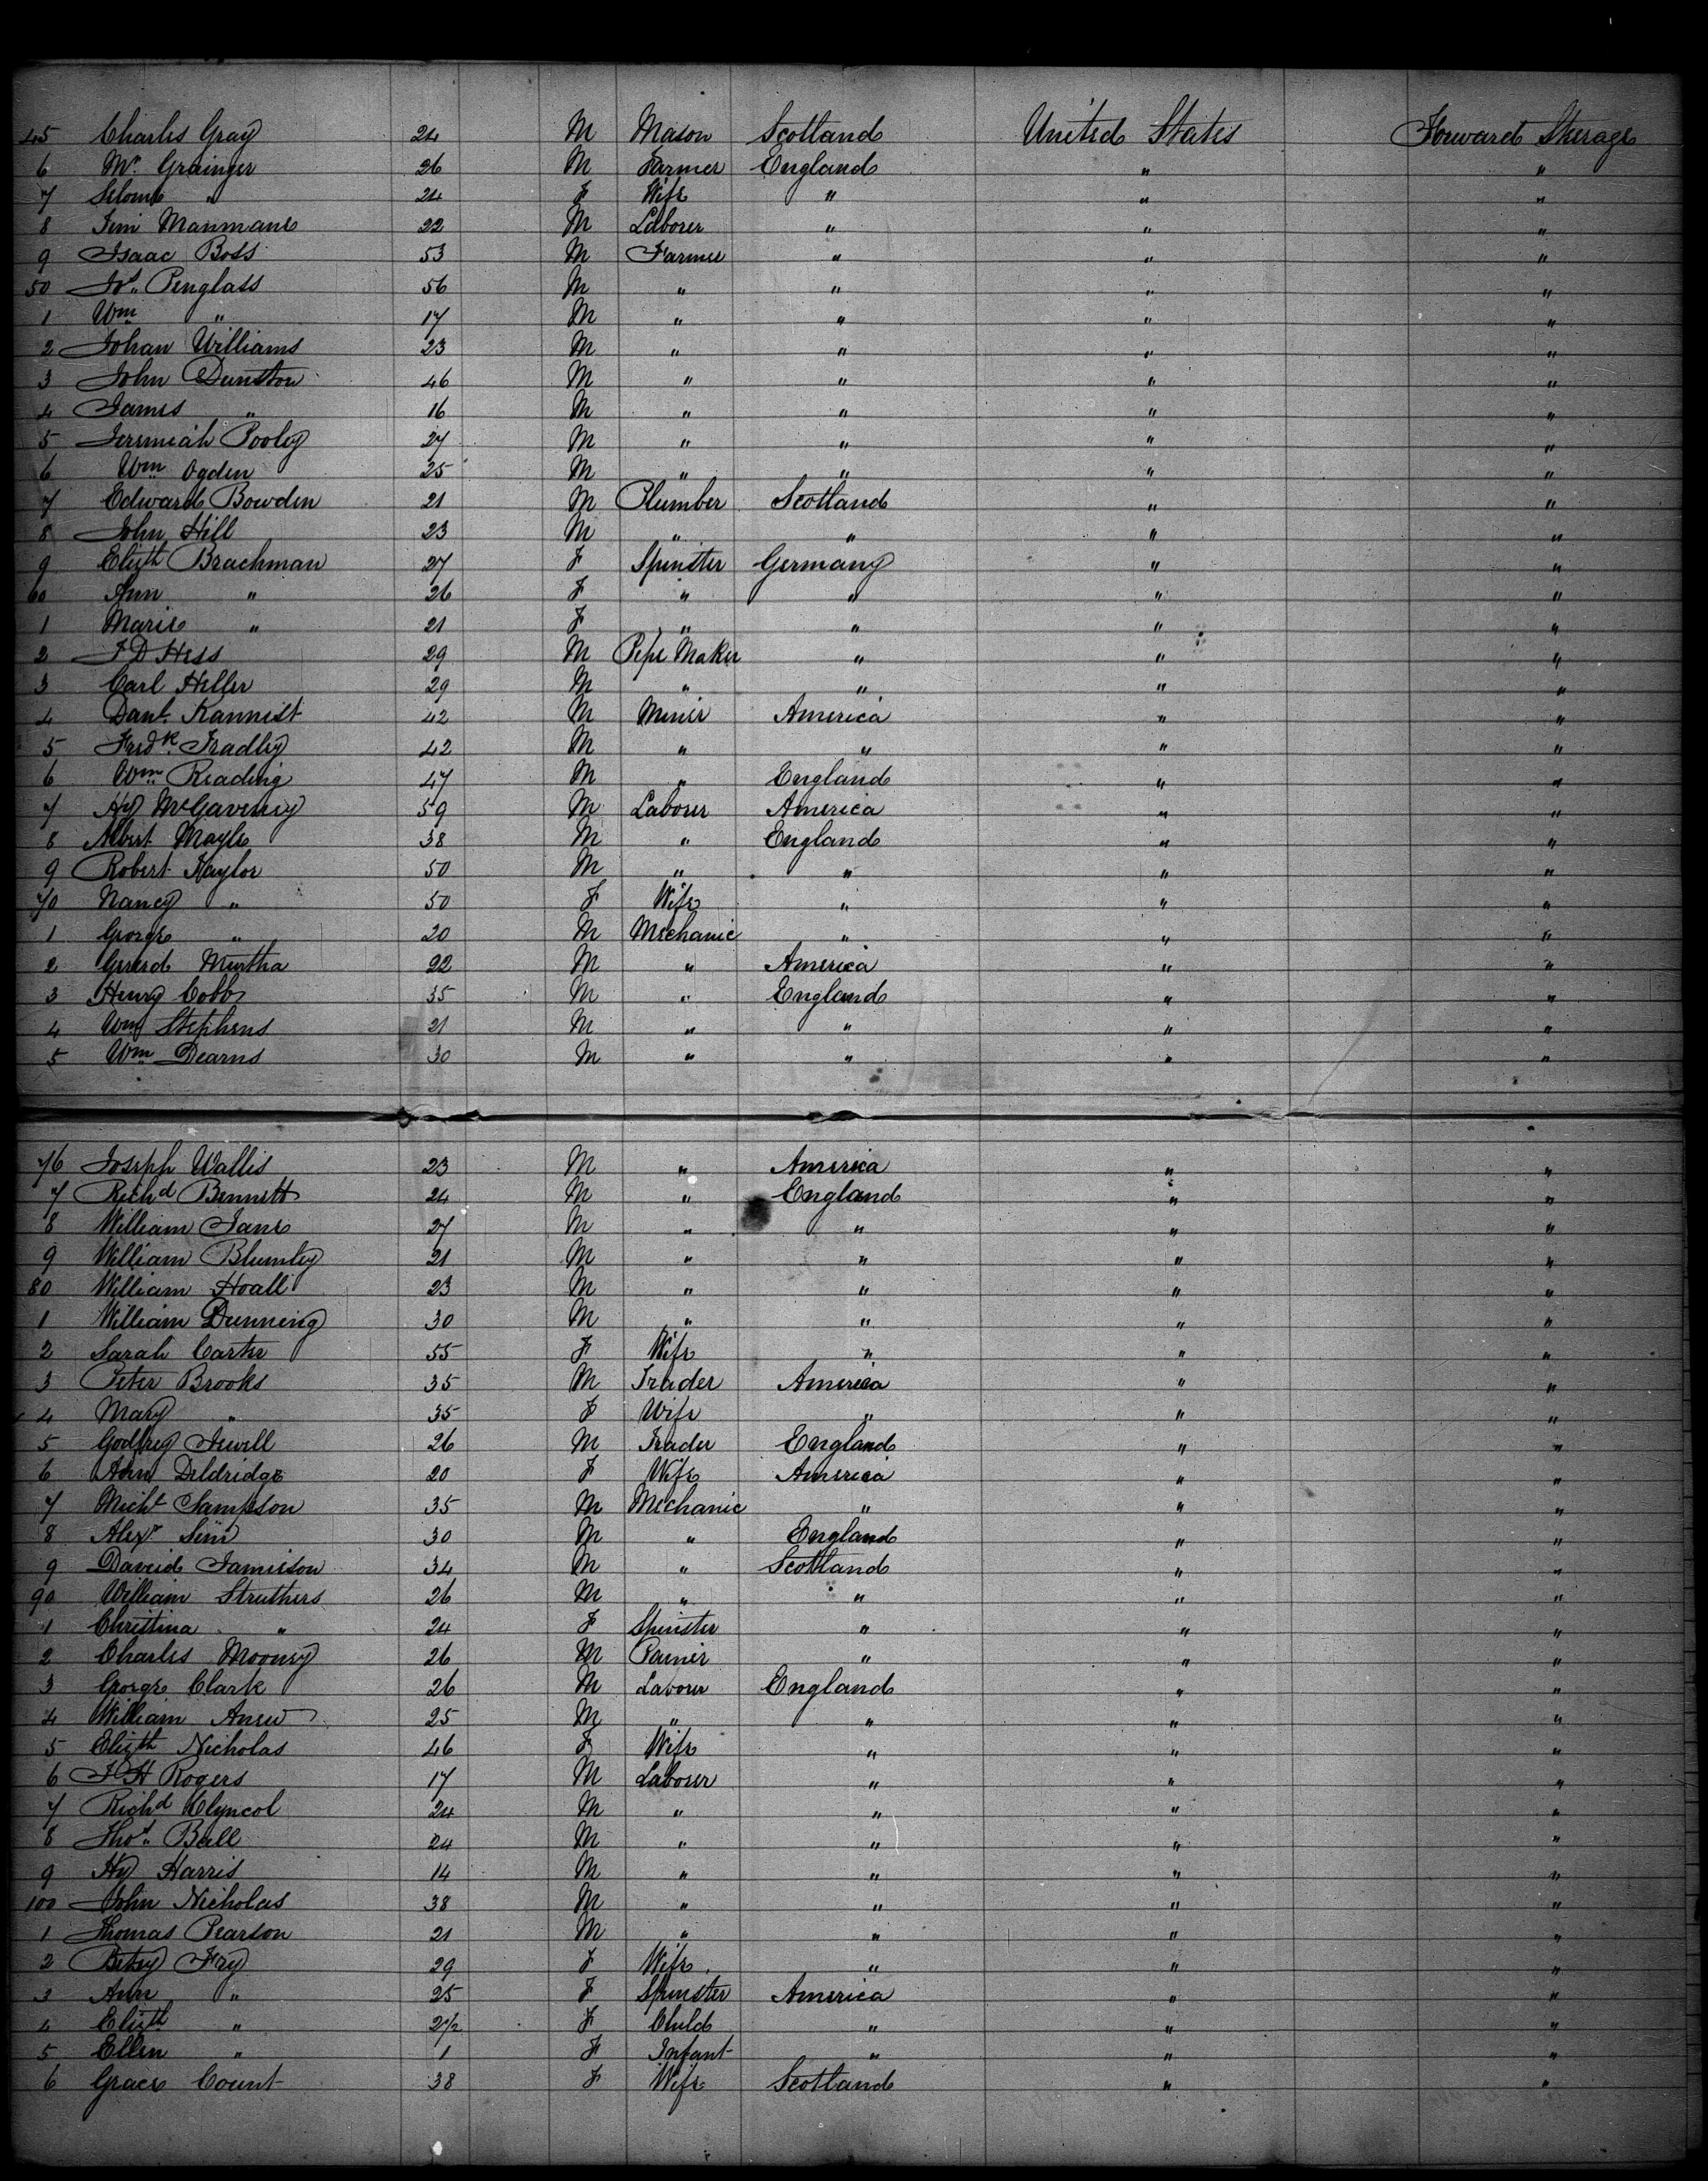 45 Charles Gray 24 M Mason Scotland United States Forward Steerage
6 Mr. Grainger 26 M Farmer England " "
7 " 24 F Wife " " "
8 Jim Manmane 22 M Laborer " " "
9 Isaac Boss 53 M Farmer " " "
50 Jos. Penglass 56 M " " " "
1 Wm " 17 M " " " "
2 Johan Williams 23 M " " " "
3 John Dunston 46 M " " " "
4 James " 16 M " " " "
5 Jeremiah Pooley 27 M " " " "
6 Wm Ogden 25 M " " " "
7 Edward Bowden 21 M Plumber Scotland " "
8 John Hill 23 M " " " "
9 Elizth Brachman 27 F Spinster Germany " "
60 Ann " 26 F " " " "
1 Marie " 21 F " " " "
2 J D Hess 29 M Pipe Maker " " "
3 Carl Heller 29 M " " " "
4 Danl. Kannist 42 M Miner America " "
5 Fredk. Fradley 42 M " " " "
6 Wm Reading 47 M " England " "
7 Hy McGaveney 59 M Laborer America " "
8 Albert Mayle 38 M " England " "
9 Robert Kaylor 50 M " " " "
70 Nancy " 50 F Wife " " "
1 George " 20 M Mechanic " " "
2 Gerard Murtha 22 M " America " "
3 Henry Cobb 35 M " England " "
4 Wm Stephens 21 M " " " "
5 Wm Dearns 30 M " " " "
76 Joseph Wallis 23 M " America " "
7 Richd Bennett 24 M " England " "
8 William Jane 27 M " " " "
9 William Blumley 21 M " " " "
80 William Hoall 23 M " " " "
1 William Dunning 30 M " " " "
2 Sarah Carter 55 F Wife " " "
3 Peter Brooks 35 M Trader America " "
4 Mary " 35 F Wife " " "
5 Godfrey Jewell 26 M Trader England " "
6 Ann Deldridge 20 F Wife America " "
7 Michl Sampson 35 M Mechanic " " "
8 Alexr Sim 30 M " England " "
9 David Jamieson 34 M " Scotland " "
90 William Struthers 26 M " " " "
1 Christina " 24 F Spinster " " "
2 Charles Mooney 26 M " " "
3 George Clark 26 M Laborer England " "
4 William 25 M " " " "
5 Elizth Nicholas 46 F Wife " " "
6 J H Rogers 17 M Laborer " " "
7 Richd Clyncol 24 M " " " "
8 Thos. Ball 24 M " " " "
9 Hy Harris 14 M " " " "
100 John Nicholas 38 M " " " "
1 Thomas Pearson 21 M " " " "
2 Betsy Fry 29 F Wife " " "
3 Ann " 25 F Spinster America " "
4 Elizth " 2½ F Child " " "
5 Ellen " 1 F Infant " " "
6 Grace Count 38 F Wife Scotland " "